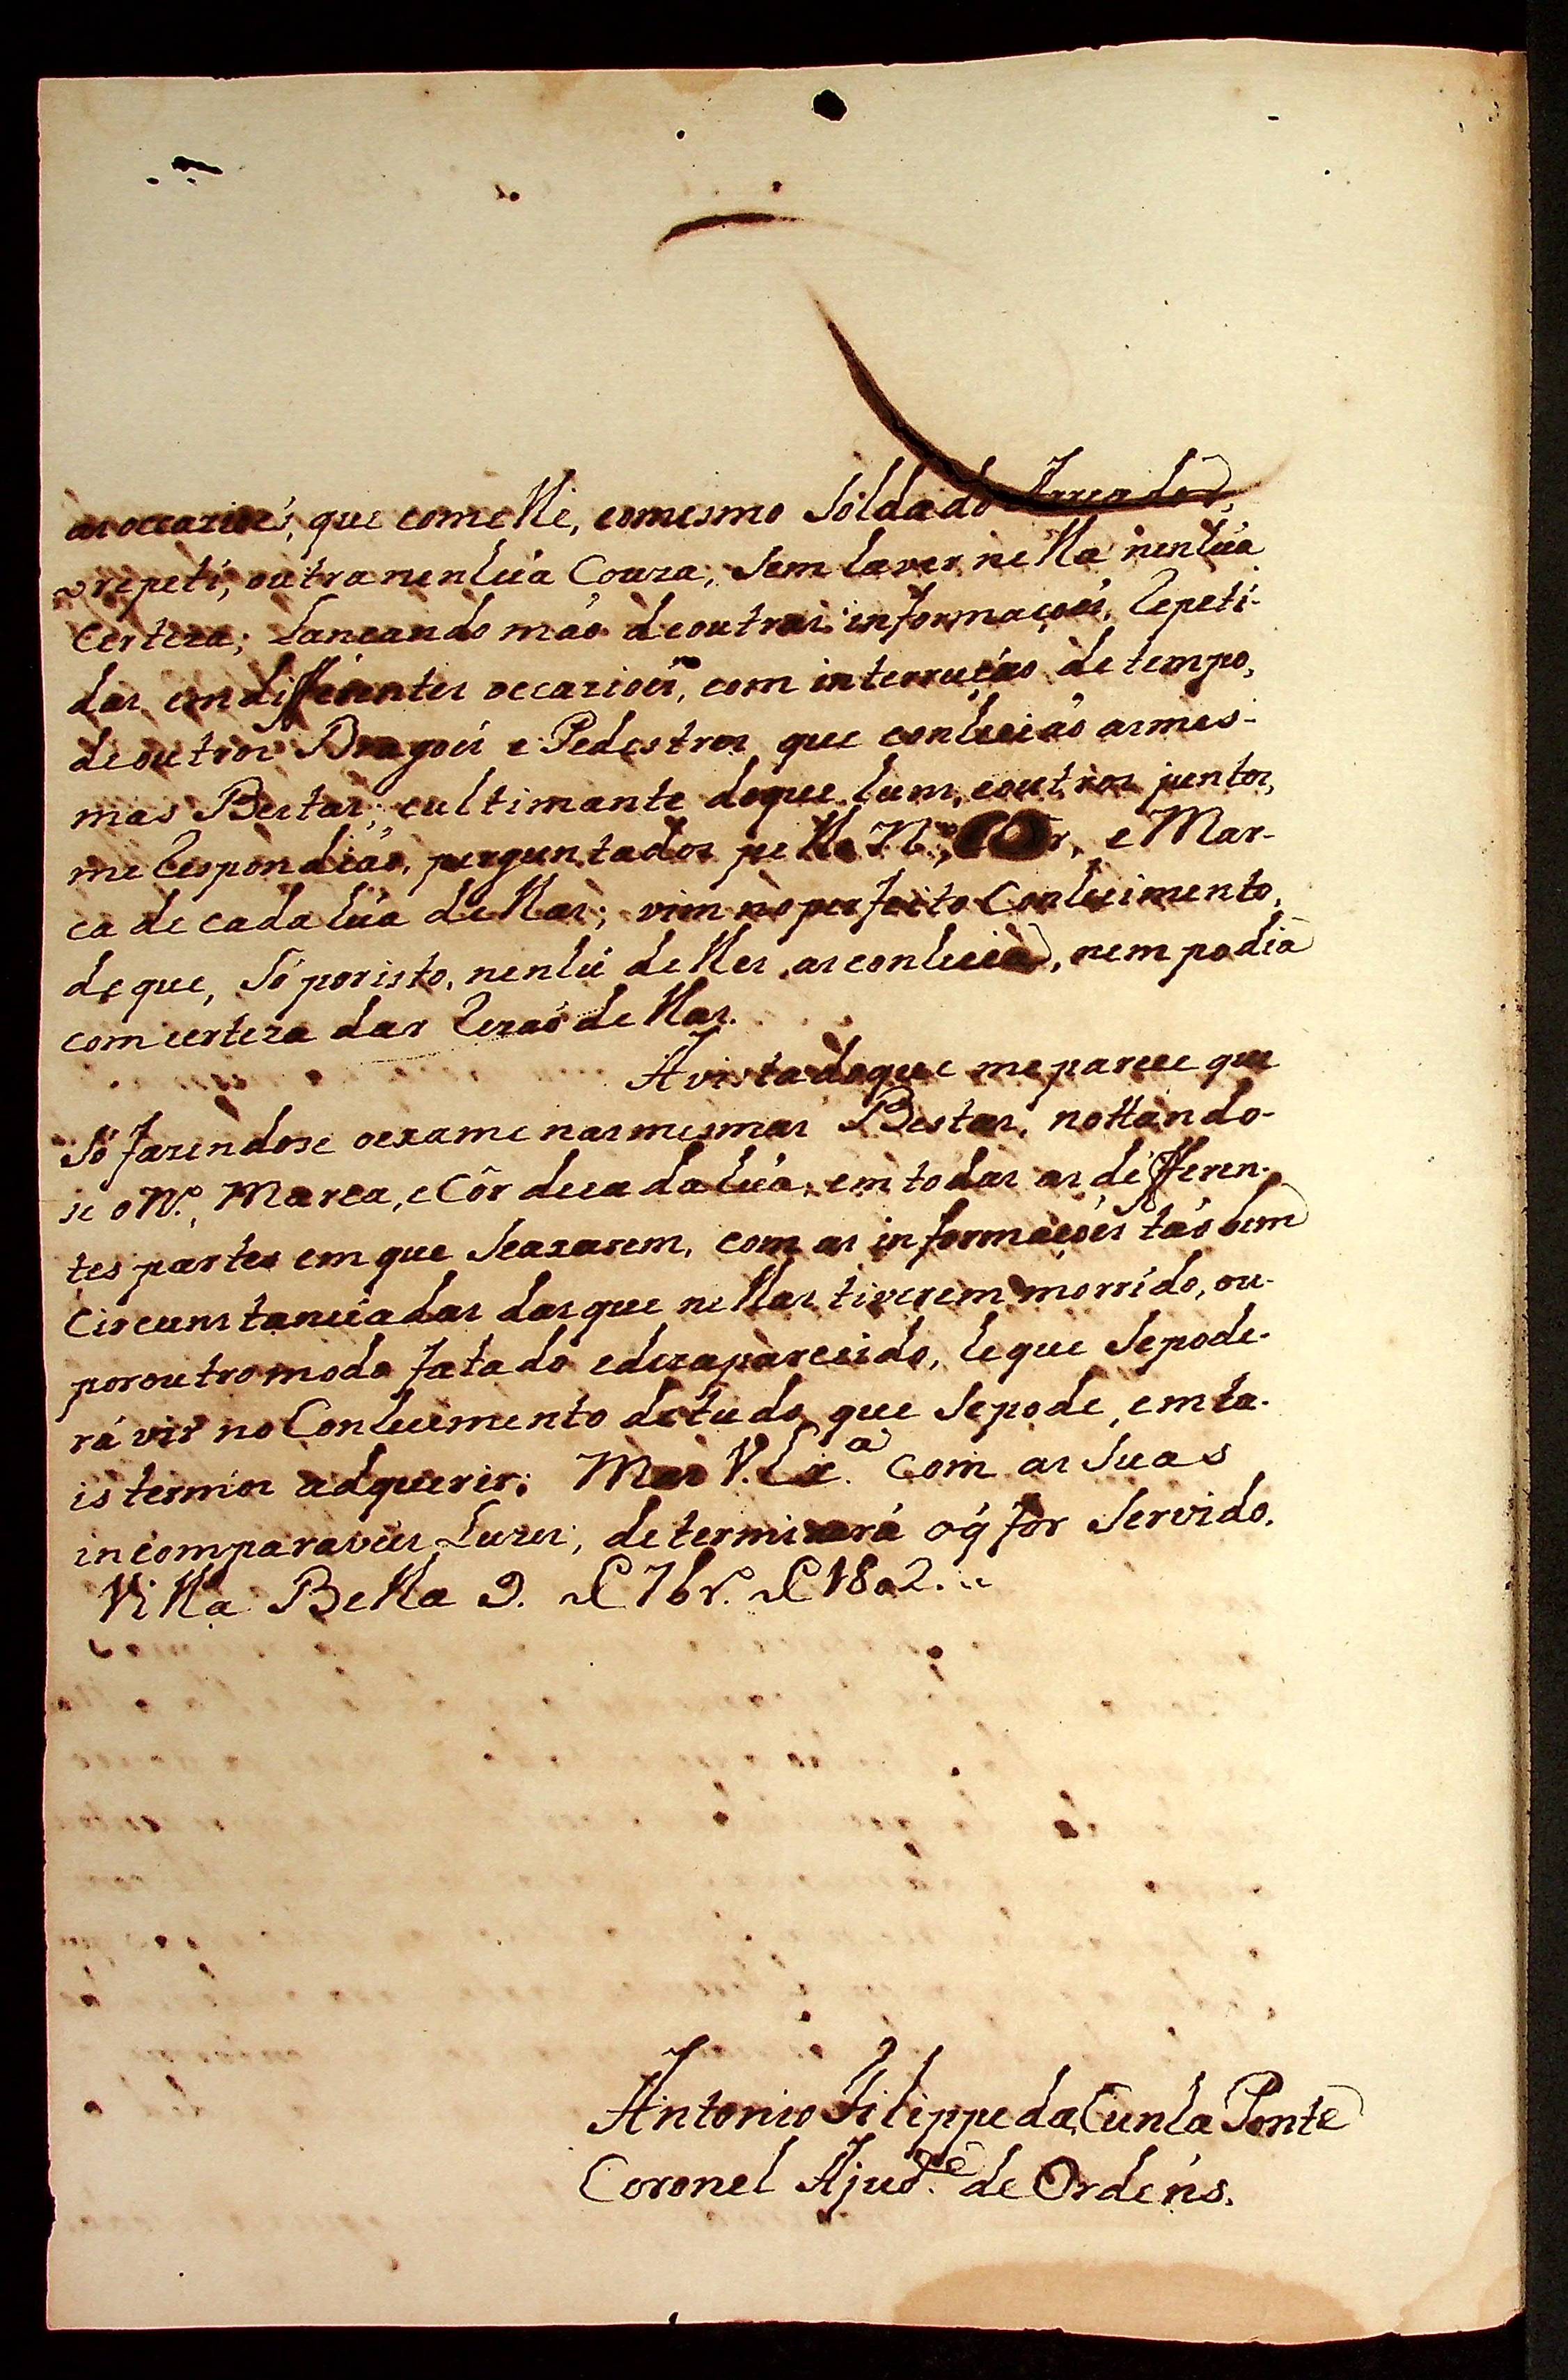 as occazioēs, que com elle, e o mesmo Soldado
o repeti, outra nenhúa Couza, Sem haver nella nenhúa
Certeza; Lancando máo de outras informaçoés, Repeti-
das em differentes occazioés, com interrução de tempo,
de outros Dragoés e Pedestres que conhecião as mes-
mas Bestas; e ultimante do que huns, e outros juntos,
me Respondião, perguntados pello Nº, Côr, e Mar-
ca de cada húa dellas; vim no perfeito Conhecimento,
de que, Só por isto, nenhú delles as conhecia, nem podia
com certeza dar Rezaõ dellas.
A vista do que me parece que
Só fazendose o exame nas mesmas Bestas, nottando-
se o Nº, Marca, e Côr de cada húa, em todas as differen-
tes partes em que Se axarem, com as informaçoés tão bem
Circunstanciadas das que nellas tiverem morrido, ou
por outro modo fatado e dezaparecido, he que Se pode-
rá vir no Conhecimento de tudo que Se pode, em ta-
is termos adquerir; Mas V. Exª com as Suas
incomparaveis Luzes, determinará o q̃ for Servido.
Villa Bella 9. de 7br.º de 1802.
Antonio Filippe da Cunha Ponte
Coronel Ajud.e de Ordéns.